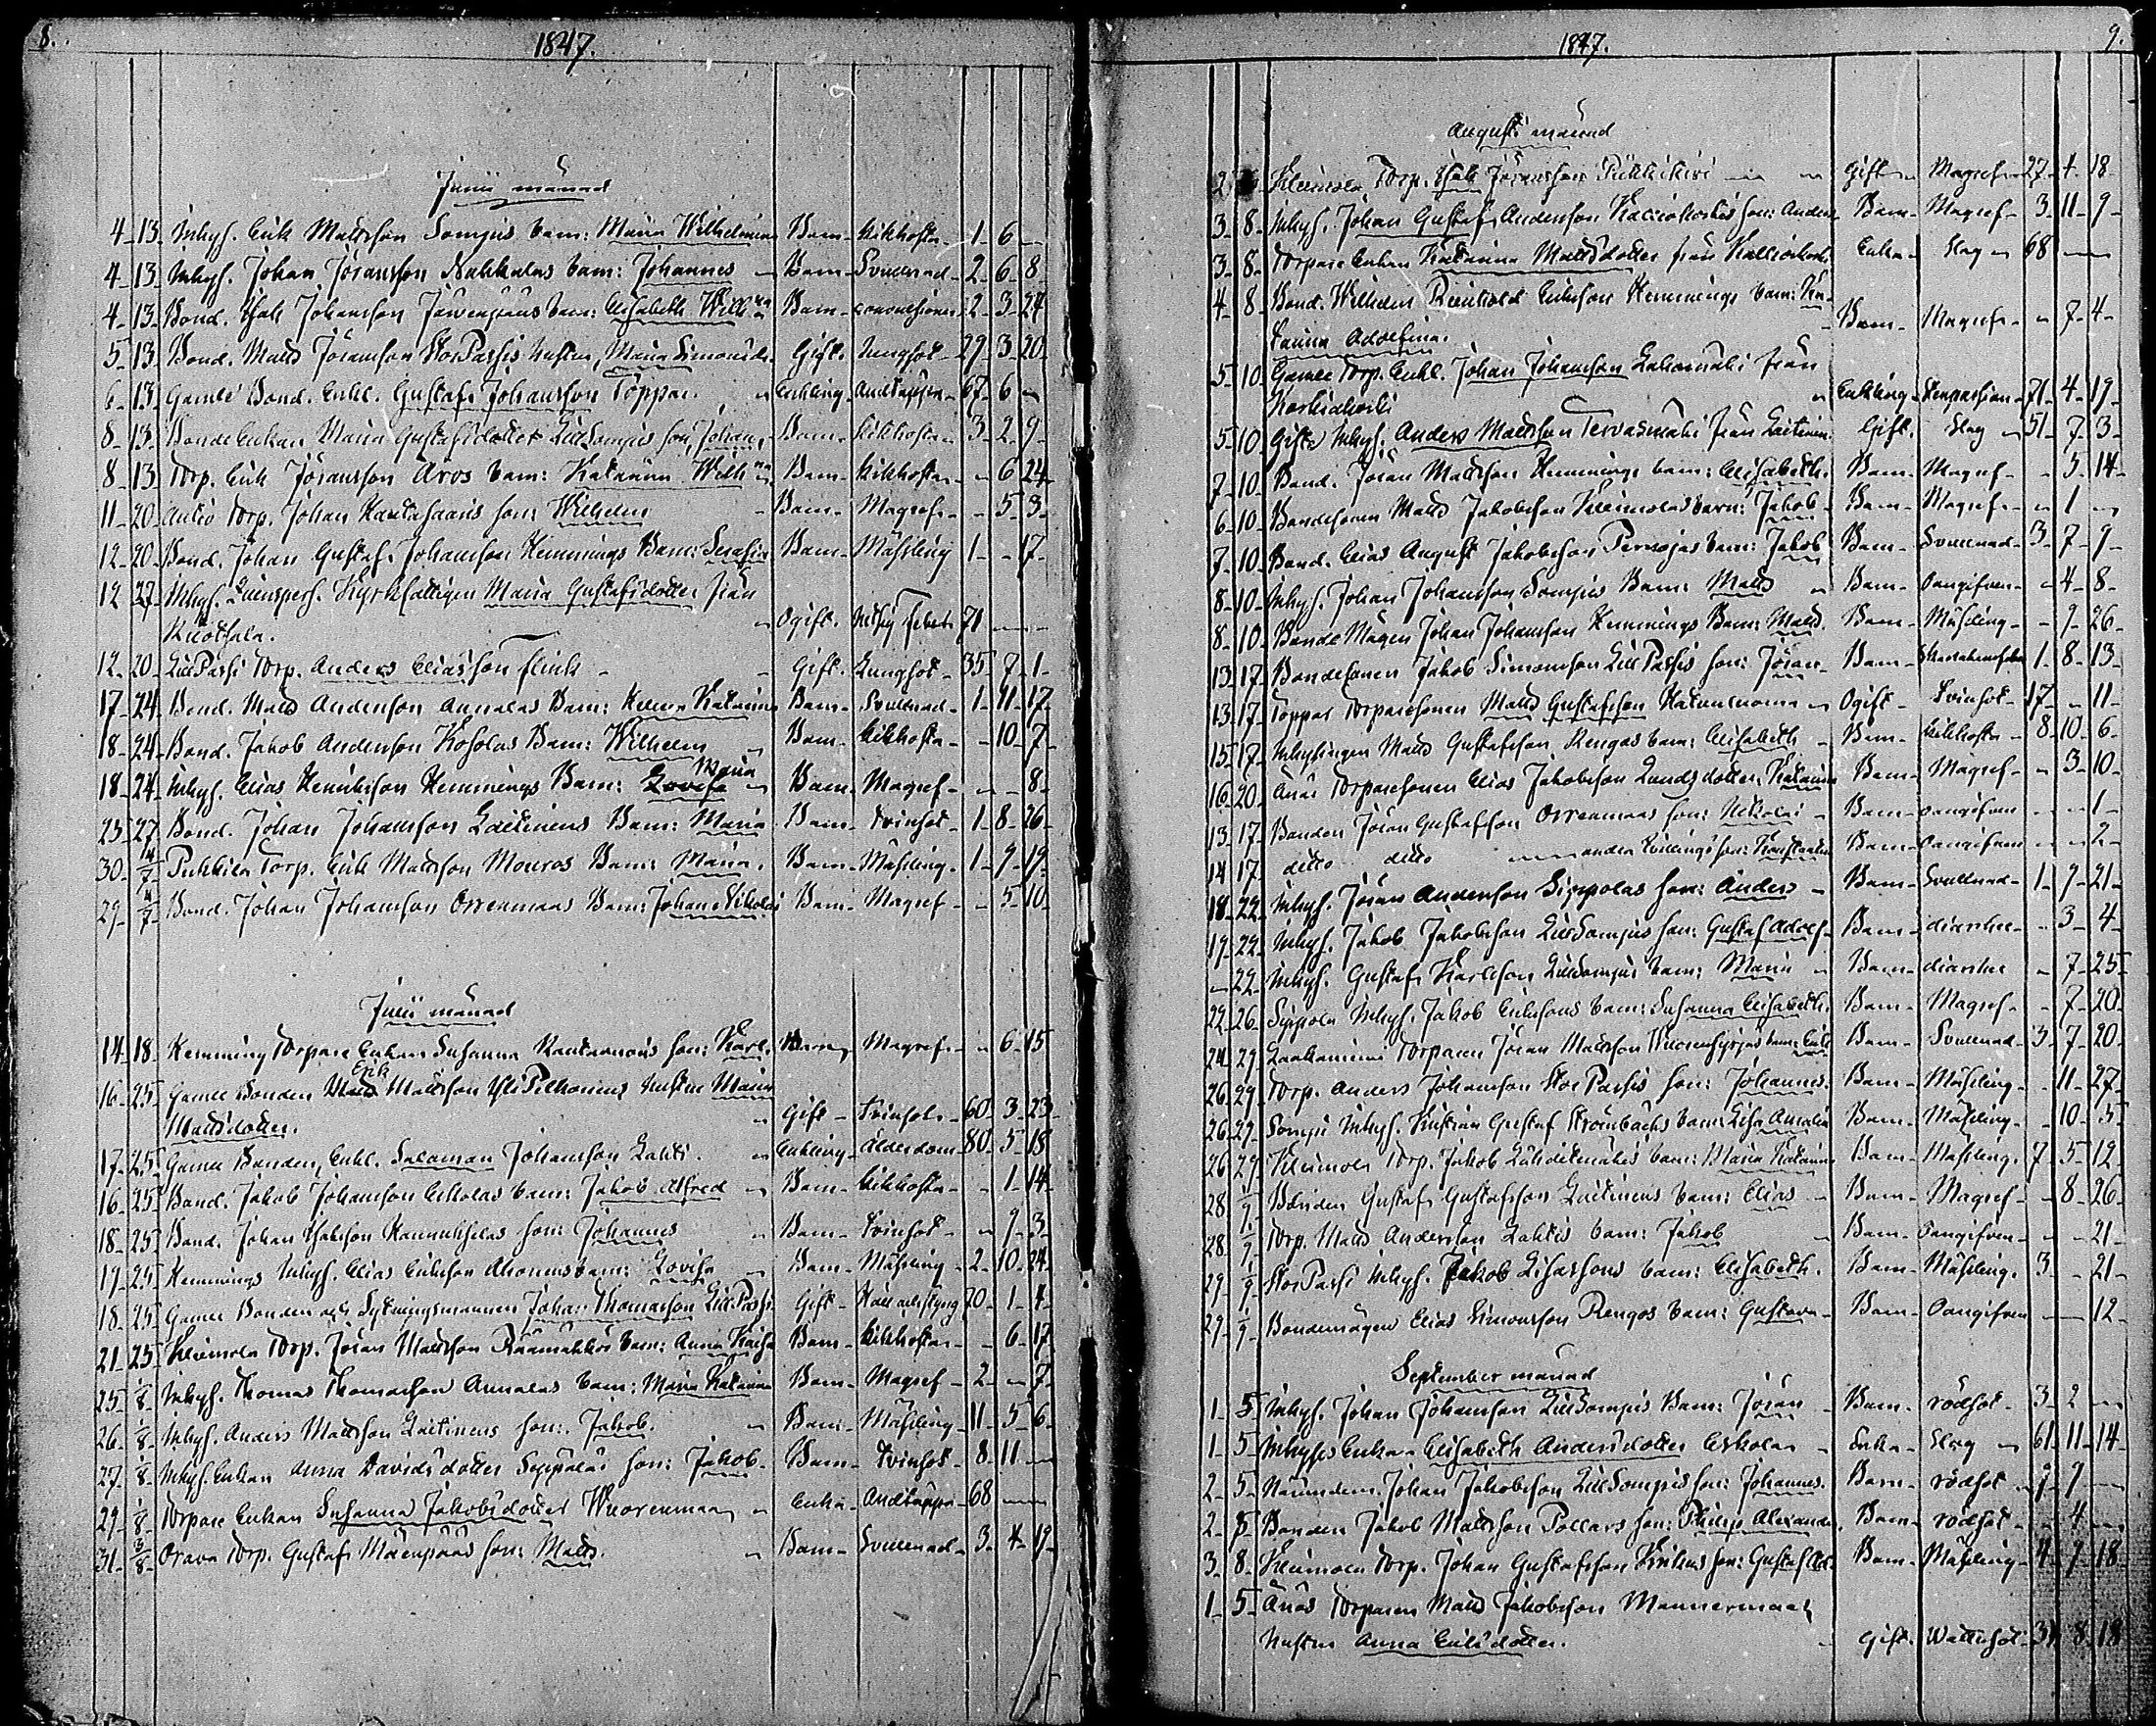 8.
1847.
Junii månad
4 13 Inhys. Erik Mattsson Sompis barn: Maria Wilhelmina Barn Kikhosta 1 6
4 13 Inhys. Johan Jöransson Nikkulas barn: Johannes Barn Svullnad 2 6 8
4 13 Bond. Isak Johansson barn: Elisabeth Wilh:na Barn 2 3 24
5 13 Bond. Matts Jöransson StorPassis hustru, Maria Simonsdr. Gift. Lungsot 29 3 20
6 13 Gamle Bond. Enkl. Gustaf Johansson Toppar. Enkling Andtäppa 67 6
8 13 Bonde Enkan Maria Gustafsdotter LillSompis son, Johan Barn Kikhosta 3 2 9
8 13 Torp. Erik Jöransson Aros barn: Katarina Wilh:na Barn Kikhosta 6 24
11 20 Antio Torp. Johan son: Wilhelm Barn Magref 5 3
12 20 Bond. Johan Gustaf Johansson Hemmings Barn: Serafia Barn Mässling 1 17
12 27 Inhys. Qvinspers. Kyrkfattigen Maria Gustafsdotter från
Ruotsala. Ogift. 71
12 20 LillPassi Torp. Anders Eliasson Flink Gift. Lungsot 35 7 1
17 24 Bond. Matts Andersson Annalas Barn: Helena Katarina Barn Svullnad 1 11 17
18 24 Bond. Jakob Andersson Kosolas Barn: Wilhelm Barn Kikhosta 10 7
18 24 Inhys. Elias Henriksson Hemmings Barn: Maria Lovisa Barn Magref 8
23 27 Bond. Johan Johansson Laitinens Barn: Maria Barn Tvinsot 1 8 26
30 4/7 Pukkila Torp. Erik Mattsson Mouros Barn: Maria. Barn Mässling 1 9 19
29 4/7 Bond. Johan Johansson Orrenmaas Barn: Johan Nikolai Barn Magref 5 10
Julii månad
14 18 Hemming Torpare Enkan Susanna son: Karl. Barn Magref 6 15
16 25 Gamle Bonden Erik Mattsson YliPilhonens hustru Maria
Mattsdotter. Gift Tvinsot 60 3 23
17 25 Gamle Bonden, Enkl. Salomon Johansson Lahti. Enkling Ålderdom 80 5 18
16 25 Bond. Jakob Johansson Eskolas barn: Jakob Alfred Barn Kikhosta 1 14
18 25 Bond. Johan Isaksson Kannukselas son: Johannes Barn Tvinsot 9 3
19 25 Hemmings Inhys. Elias Eriksson Ahonens barn: Lovisa Barn Mässling 2 10 24
18 25 Gamle Bonden och Sytningsmannen Johan Thomasson LillPassi Gift Håll och styng 70 1 4
21 25 Kleimola Torp. Jöran Mattsson barn: Anna Kaisa Barn Kikhosta 6 17
25 1/8 Inhys. Thomas Thomasson Annalas barn: Maria Katarina Barn Magref 2 7
26 1/8 Inhys. Anders Mattsson Laitinens son: Jakob. Barn Mässling 11 5 6
27 1/8 Inhys. Enkan Anna Davidsdotter Seppälas son: Jakob Barn Tvinsot 8 11
29 1/8 Torpare Enkan Susanna Jakobsdotter Wuorenmaa Enka Andtäppa 68
31 8/8 Orava Torp. Gustaf Mäenpääs son: Matts. Barn Svullnad 3 4 19
1847. 9.
Augusti månad
2 8 Kleimola Torp. Isak Jöransson Pirkkikivi Gift Magref 27 4 18
3 8 Inhys. Johan Gustaf Andersson Kalliokoskis son: Anders Barn Magref 3 11 9
3 8 Torpare Enkan Katarina Mattsdotter från Kalliokoski Enka Slag 68
4 8 Bond. Wilhelm Reinhold Eriksson Hemmings barn: Ka-
tarina Adolfina. Barn Magref 7 4
5 10 Gamle Torp. Enkl. Johan Johansson Lahanmäki från
Koskiahoski Enkling 71 4 19
5 10 Gifta Inhys. Anders Mattsson Tervasmäki från Laitinen Gift. Slag 51 7 3
7 10 Bond. Jöran Mattsson Hemmings barn: Elisabeth. Barn Magref 5 14
6 10 Bondesonen Matts Jakobsson Kleimolas barn: Jakob Barn Magref 1
7 10 Bond. Elias August Jakobsson Pernojas barn: Jakob Barn Svullnad 3 7 9
8 10 Inhys. Johan Johansson Sompis Barn: Matts Barn Oangifven 4 8
8 10 Bonde Mågen Johan Johansson Hemmings Barn: Matts. Barn Mässling 9 26
13 17 Bondesonen Jakob Simonsson LillPassis son: Jöran Barn 1 8 13
13 17 Toppar Torparesonen Matts Gustafsson Ogift Tvinsot 17 11
15 17 Inhysingen Matts Gustafsson Rengos barn: Elisabeth Barn Kikhosta 8 10 6
16 20 Anas Torparesonen Elias Jakobsson Lunds dotter: Katarina Barn Magref 3 10
13 17 Bonden Jöran Gustafsson Orrenmaas son: Nikolai Barn Oangifven 1
14 17 ditto ditto andra tvillings son: Konstantin Barn Oangifven 2
18 22 Inhys. Jöran Andersson Sippolas son: Anders Barn Svullnad 1 9 21
19 22 Inhys. Jakob Jakobsson LillSompis son: Gustaf Adolf Barn diarrhe 3 4
22 Inhys. Gustaf Karlsson LillSompis barn: Maria Barn diarrhe 7 25
22 26 Sippola Inhys. Jakob Erikssons barn: Susanna Elisabeth. Barn Magref 7 20
24 29 Torparen Jöran Mattsson barn: Erik Barn Svullnad 3 7 20
26 29 Torp. Anders Johansson StorPassis son: Johannes. Barn Mässling 11 27
26 29 Sompi Inhys. Kristian Gustaf Strömbäcks barn: Lisa Amalia Barn Mässling 10 5
26 29 Kleimola Torp. Jakob barn: Maria Katarina Barn Mässling. 7 5 12
28 1/9 Bonden Gustaf Gustafsson Laitinens barn: Elias Barn Magref 8 26
28 1/9 Torp. Matts Andersson Lahtis barn: Jakob Barn Oangifven 21
29 1/9 StorPassi Inhys. Jakob barn: Elisabeth. Barn Mässling. 3 21
29 1/9 Bondemågen Elias Simonsson Rengos barn: Gustava Barn Oangifven 12
September månad
1 5 Inhys. Johan Johansson LillSompis Barn: Jöran Barn rödsot 3 2
1 5 Inhyses Enkan Elisabeth Andersdotter Eskolas Enka Slag 61 11 14
2 5 Nämndem. Johan Jakobsson LillSompis son: Johannes. Barn rödsot 9 9
2 8 Bonden Jakob Mattsson Pollars son: Philip Alexander. Barn rödsot 4
3 8 Kleimola Torp. Johan Gustafsson son: Gustaf Ad. Barn Mässling 4 7 18
1 5 Anas Torparen Matts Jakobsson Mannermaas
hustru Anna Eriksdotter. Gift. Wattusot 31 8 18